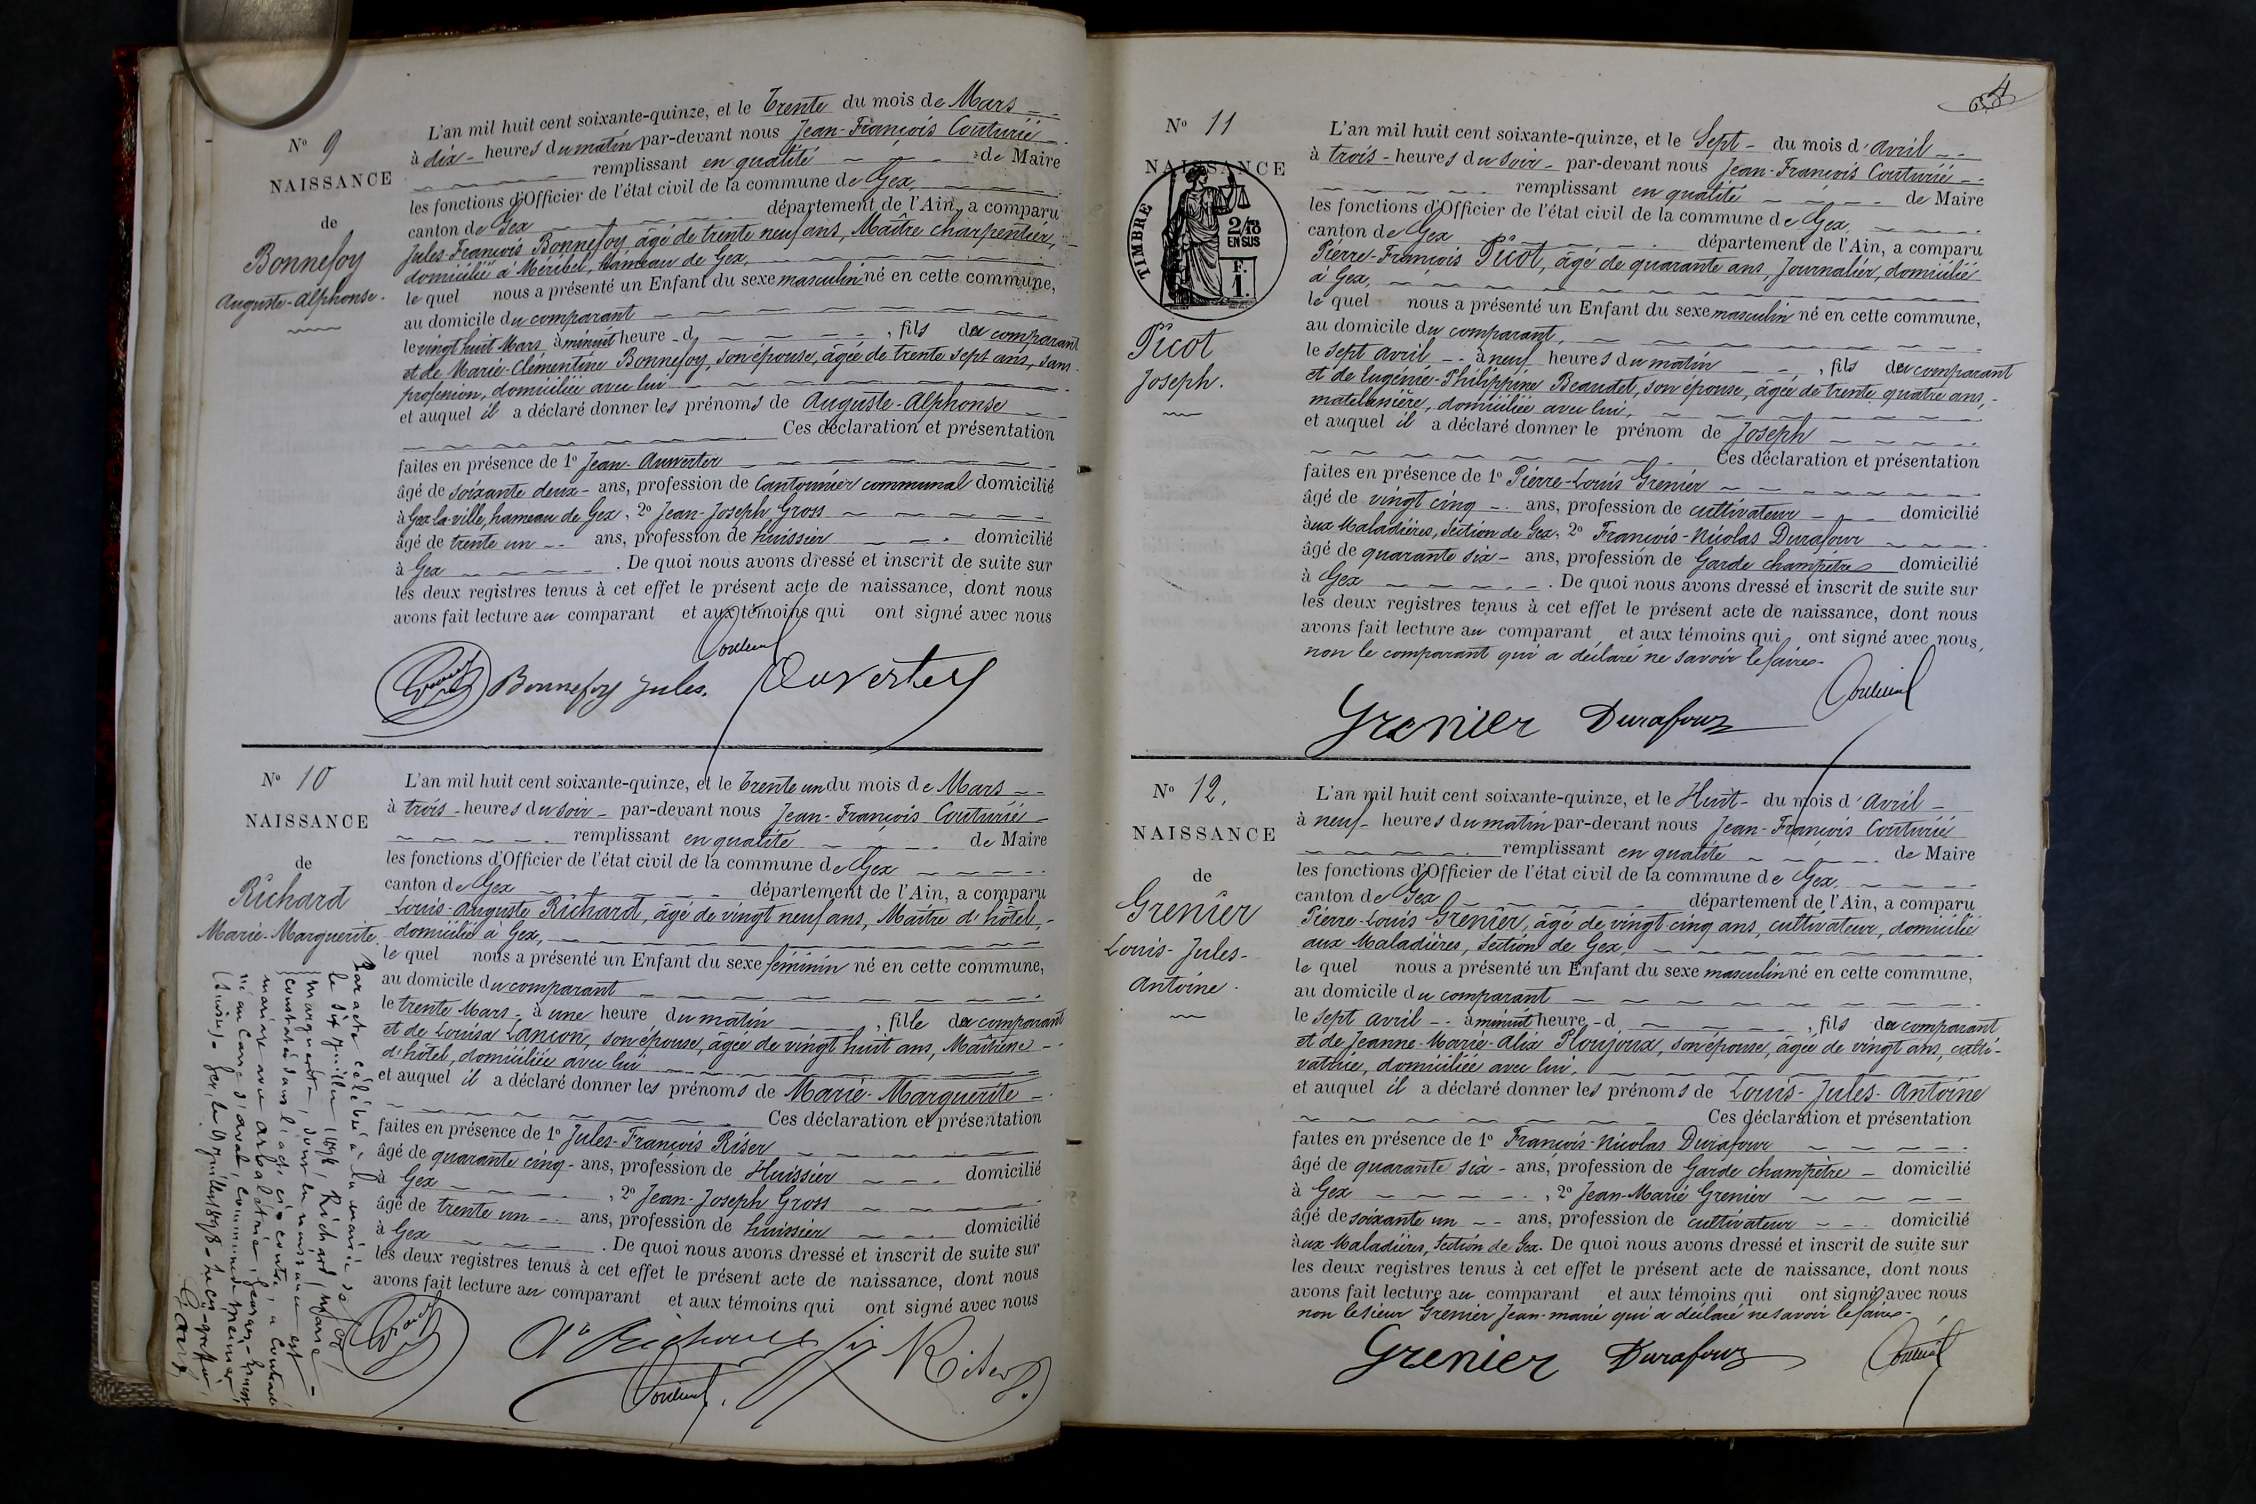 N° 9
NAISSANCE
de
Bonnefoy
Auguste-Alphonse.
L'an mil huit cent soixante-quinze, et le Trente du mois de Mars
à dix heures du matin par-devant nous Jean-François Couturié
remplissant en qualité de Maire
les fonctions d'Officier de l'état civil de la commune de Gex,
canton de Gex département de l'Ain, a comparu
Jules-François Bonnefoy âgé de trente neuf ans, Maître charpentier,
domicilié à Méribel, hameau de Gex,
le quel nous a présenté un Enfant du sexe masculin né en cette commune,
au domicile du comparant
le vingt huit Mars à minuit heure d , fils du comparant
et de Marie-Clémentine Bonnefoy, son épouse, âgée de trente sept ans, sans
profession, domiciliée avec lui
et auquel il a déclaré donner les prénoms de Auguste-Alphonse
Ces déclaration et présentation
faites en présence de 1° Jean-Auwerter
âgé de soixante deux ans, profession de Cantonnier communal domicilié
à Gex-la-ville, hameau de Gex, 2° Jean-Joseph Gross
âgé de trente un ans, profession de huissier domicilié
à Gex . De quoi nous avons dressé et inscrit de suite sur
les deux registres tenus à cet effet le présent acte de naissance, dont nous
avons fait lecture au comparant et aux témoins qui ont signé avec nous
Bonnefoy Jules.
N° 10
NAISSANCE
de
Richard
Marie-Marguerite.
Par acte célébré à la mairie de Gex
le six juillet 1898, Richard (Marie-
Marguerite) dont la naissance est
constatée dans l'acte ci-contre, a contracté
mariage avec
(Suisse). Gex, le 9 juillet 1898 - Le greffier,
L'an mil huit cent soixante-quinze, et le Trente un du mois de Mars
à trois heures du soir par-devant nous Jean-François Couturié
remplissant en qualité de Maire
les fonctions d'Officier de l'état civil de la commune de Gex
canton de Gex département de l'Ain, a comparu
Louis-Auguste Richard, âgé de vingt neuf ans, Maître d'hôtel,
domicilié à Gex,
le quel nous a présenté un Enfant du sexe féminin né en cette commune,
au domicile du comparant
le trente Mars à une heure du matin , fille du comparant
et de Louisa Lançon, son épouse, âgée de vingt huit ans, Maîtresse
d'hôtel, domiciliée avec lui
et auquel il a déclaré donner les prénoms de Marie-Marguerite
Ces déclaration et présentation
faites en présence de 1° Jules-François Riser
âgé de quarante cinq ans, profession de Huissier domicilié
à Gex , 2° Jean-Joseph Gross
âgé de trente un ans, profession de huissier domicilié
à Gex . De quoi nous avons dressé et inscrit de suite sur
les deux registres tenus à cet effet le présent acte de naissance, dont nous
avons fait lecture au comparant et aux témoins qui ont signé avec nous
Riser
4
N° 11
NAISSANCE
TIMBRE
2/10
EN SUS
F.
1.
Picot
Joseph.
L'an mil huit cent soixante-quinze, et le Sept du mois d'avril
à trois heures du soir par-devant nous Jean-François Couturié
remplissant en qualité de Maire
les fonctions d'Officier de l'état civil de la commune de Gex,
canton de Gex département de l'Ain, a comparu
Pierre-François Picot, âgé de quarante ans, Journalier, domicilié
à Gex,
le quel nous a présenté un Enfant du sexe masculin né en cette commune,
au domicile du comparant,
le sept avril à neuf heures du matin , fils du comparant
et de Eugénie-Philippine Beaudet, son épouse, âgée de trente quatre ans,
matelassière, domiciliée avec lui,
et auquel il a déclaré donner le prénom de Joseph
Ces déclaration et présentation
faites en présence de 1° Pierre-Louis Grenier
âgé de vingt cinq ans, profession de cultivateur domicilié
aux Maladières, Section de Gex, 2° François-Nicolas Durafour
âgé de quarante six ans, profession de Garde champêtre domicilié
à Gex . De quoi nous avons dressé et inscrit de suite sur
les deux registres tenus à cet effet le présent acte de naissance, dont nous
avons fait lecture au comparant et aux témoins qui ont signé avec nous,
non le comparant qui a déclaré ne savoir le faire.
Grenier Durafour
N° 12.
NAISSANCE
de
Grenier
Louis-Jules-
Antoine.
L'an mil huit cent soixante-quinze, et le Huit du mois d'avril
à neuf heures du matin par-devant nous Jean-François Couturié
remplissant en qualité de Maire
les fonctions d'Officier de l'état civil de la commune de Gex,
canton de Gex département de l'Ain, a comparu
Pierre-Louis Grenier, âgé de vingt cinq ans, cultivateur, domicilié
aux Maladières, Section de Gex,
le quel nous a présenté un Enfant du sexe masculin né en cette commune,
au domicile du comparant
le sept avril à minuit heure d , fils du comparant
et de Jeanne-Marie-Alix Ploujoux, son épouse, âgée de vingt ans, culti-
vatrice, domiciliée avec lui,
et auquel il a déclaré donner les prénoms de Louis-Jules-Antoine
Ces déclaration et présentation
faites en présence de 1° François-Nicolas Durafour
âgé de quarante six ans, profession de Garde champêtre domicilié
à Gex , 2° Jean-Marie Grenier
âgé de soixante un ans, profession de cultivateur domicilié
aux Maladières, Section de Gex. De quoi nous avons dressé et inscrit de suite sur
les deux registres tenus à cet effet le présent acte de naissance, dont nous
avons fait lecture au comparant et aux témoins qui ont signé avec nous
non le sieur Grenier Jean-marie qui a déclaré ne savoir le faire.
Grenier Durafour